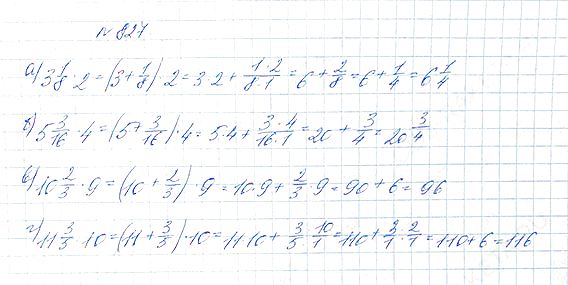 № 827
а) 3 1/8 · 2 = (3 + 1/8) · 2 = 3 · 2 + 1·2/8·1 = 6 + 2/8 = 6 + 1/4 = 6 1/4
б) 5 3/16 · 4 = (5 + 3/16) · 4 = 5·4 + 3·4/16·1 = 20 + 3/4 = 20 3/4
в) 10 2/3 · 9 = (10 + 2/3) · 9 = 10·9 + 2/3 · 9 = 90 + 6 = 96
г) 11 3/5 · 10 = (11 + 3/5) · 10 = 11·10 + 3/5 · 10/1 = 110 + 3/1 · 2/1 = 110 + 6 = 116